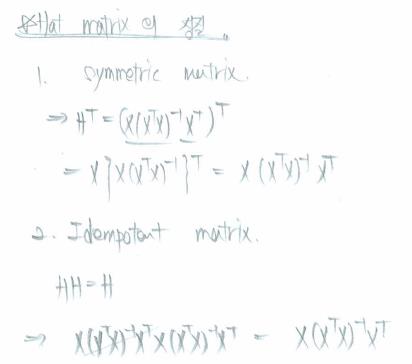 ※Hat matrix의 성질.
1. symmetric matrix.
⇒ Hᵀ = (X(XᵀX)⁻¹Xᵀ)ᵀ
= X{X(XᵀX)⁻¹}ᵀ = X(XᵀX)⁻¹Xᵀ
2. Idempotent matrix.
HH = H
⇒ X(XᵀX)⁻¹XᵀX(XᵀX)⁻¹Xᵀ = X(XᵀX)⁻¹Xᵀ